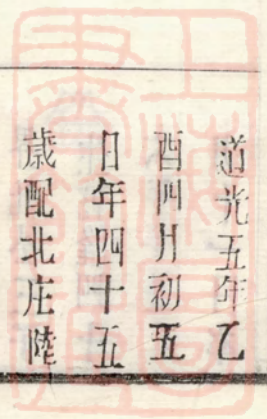 道光五年乙
酉四月初五
日年四十五
歲配北庄陸